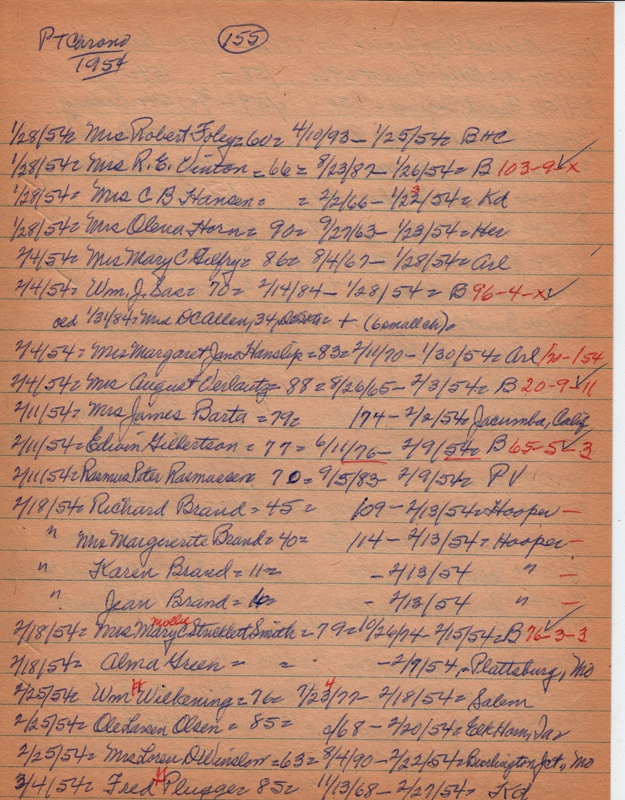 PT Chrono 155
1954
1/28/54= Mrs Robert Foley=60= 4/10/93- 1/25/54= BHC
1/28/54= Mrs R.E. Vinton=66= 8/23/87- 1/26/54= B 103-9-x
1/28/54= Mrs C B Hansen= = 2/2/66- 1/23/54= Kd
1/28/54= Mrs Olena Horn= 90= 9/27/63- 1/23/54= Her
2/4/54= Mrs Mary C Gilfry= 86= 8/4/67- 1/28/54= Arl
2/4/54= Wm. J. Sas= 70= 2/14/84- 1/28/54= B 96-4-x
oed 1/31/84= Mrs D C Allen, 34, = + (6 small ch)=
2/4/54= Mrs Margaret Jane Hanslip=83= 2/11/70- 1/30/54= Arl 120-154
2/4/54= Mrs August Verlautz= 88= 8/26/65- 2/3/54= B 20-9-11
2/11/54= Mrs James Barta=79= 174- 2/2/54= Jacumba, Calif
2/11/54= Edwin Gilbertson= 77= 6/11/76- 2/9/54= B 65-5-3
2/11/54= Rasmus Peter Rasmussen 70= 9/5/83- 2/9/54= PV
2/18/54= Richard Brand=45= 109- 2/13/54= Hooper -
" Mrs Marguerite Brand=40= 114- 2/13/54= Hooper -
" Karen Brand= 11= - 2/13/54 " -
" Jean Brand= = - 2/13/54 " -
2/18/54= Mrs Mary Mollie C Stucklett Smith= 79= 10/26/74- 2/15/54= B 76-3-3
2/18/54= Alma Green= = -2/7/54,- Plattsburg, Mo
2/25/54= Wm H Wilkening=76= 7/24/77- 2/18/54= Salem
2/25/54= Ole Larsen Olsen= 85= /68- 2/20/54= Elk Horn, Iar
2/25/54= Mrs Loren D Winslow=63= 8/4/90- 2/22/54= Burlington Jct., Mo
3/4/54= Fred H Plugge= 85= 11/13/68- 2/27/54= Kd